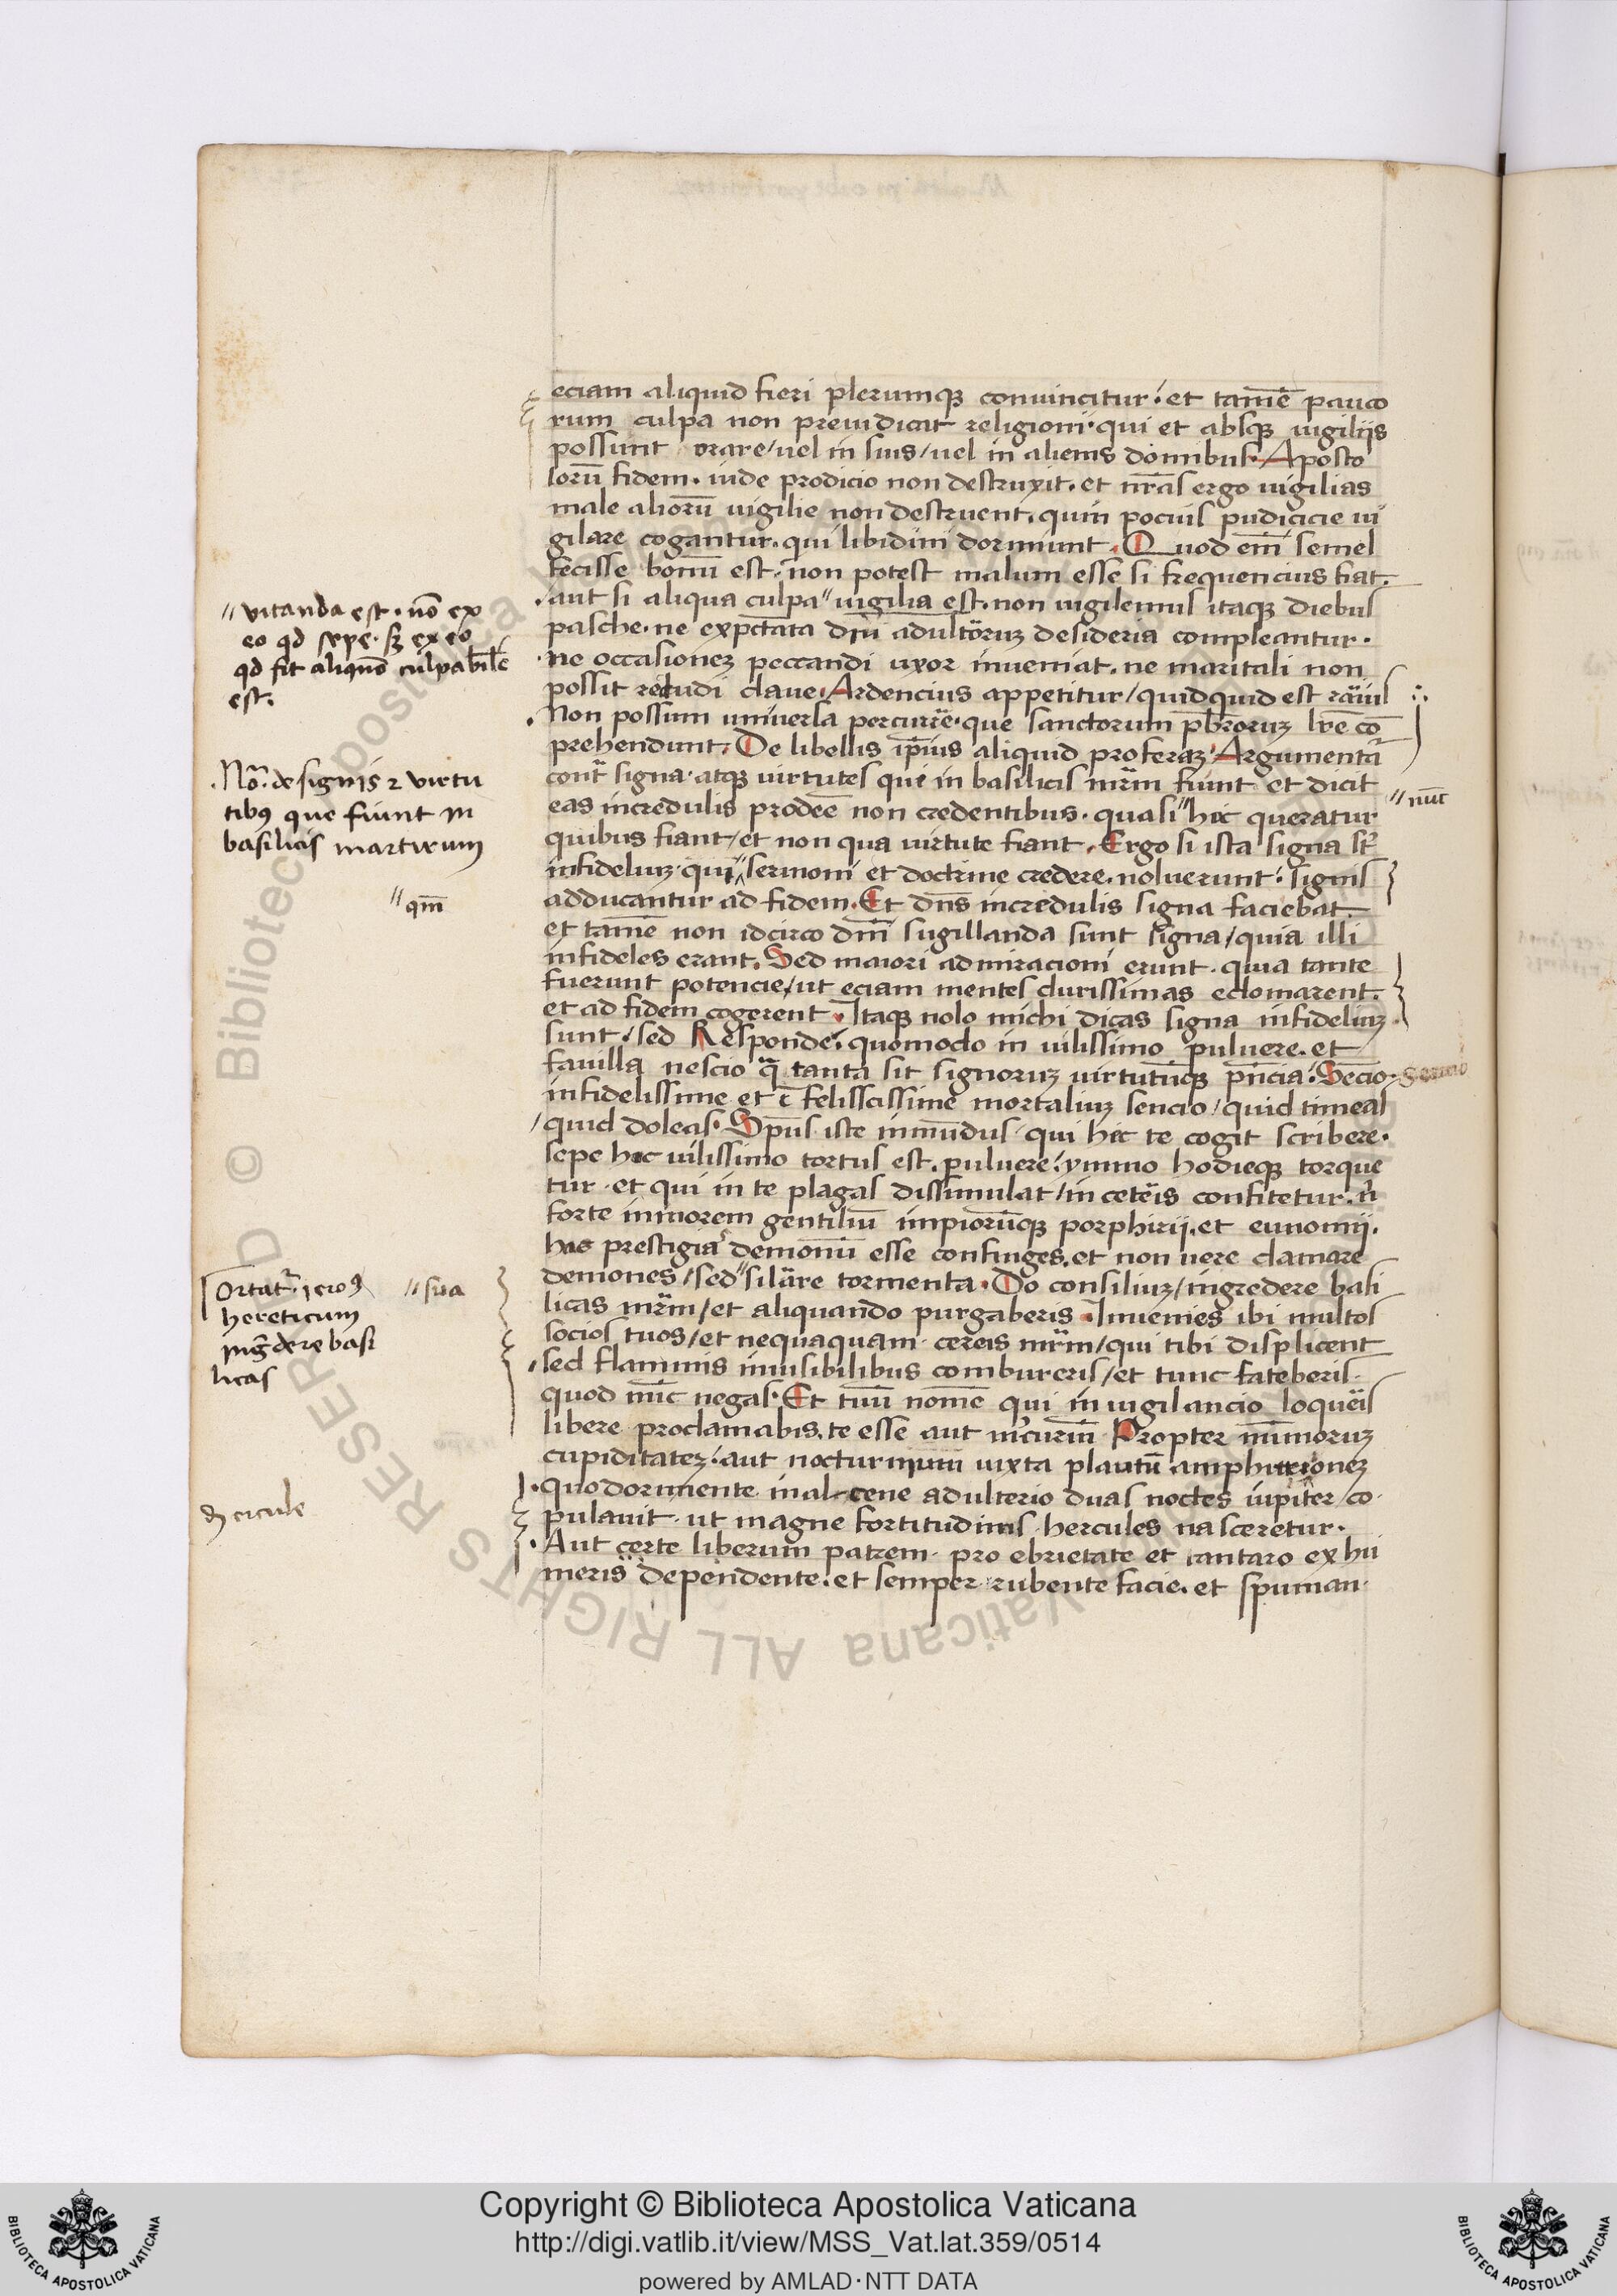 eciam aliquid fieri plerumqꝫ conuincitur: et tamē pauco
rum culpa non preiudicat religioni· qui et absqꝫ uigiliis
possunt orare/uel in suis/uel in alienis domibus· Aposto
lorū fidem· iude prodicio non destruxit· et nr̄as ergo uigilias
male aliorū uigilie non destruent· quin pocius pudicicie ui
gilare cogantur· qui libidini dormiunt· Quod em̄ semel
fecisse bonū est· non potest malum esse si frequencius fiat·
aut si aliqua culpa" uigilia est· non uigilemus itaqꝫ diebus
pasche· ne expc̄tata diu adultoruꝫ desideria compleantur·
ne occasioneꝫ peccandi uxor inueniat· ne maritali non
possit recludi claue· Ardencius appetitur/quidquid est rarius
Non possum uniuersa percurrē· que sanctorum pb̄roruꝫ lr̄e cō
prehendunt· De libellis ip̄ius aliquid proferaꝫ· Argumenta
cont̄ signa· atqꝫ uirtutes que in basilicis mr̄m fiunt et dicit
eas incredulis prodeē non credentibus· quasi" hic queratur
quibus fiant/et non qua uirtute fiant· Ergo si ista signa st̄
infideliuꝫ· qui" sermoni et doctrine credere· noluerunt: signis
adducantur ad fidem· Et dn̄s incredulis signa faciebat·
et tamē non idcirco dn̄i sugillanda sunt signa/quia illi
infideles erant· Sed maiori admiracioni erunt· quia tante
fuerunt potencie/ut eciam mentes durissimas edomarent·
et ad fidem cogerent· Itaqꝫ nolo michi dicas signa infideliuꝫ
sunt/sed Responde: quomodo in uilissimo puluere· et
fauilla nescio qua tanta sit signoruꝫ uirtutūqꝫ pn̄cia: Secio·
infidelissime et ī felisscissime mortaliuꝫ sencio/quid timeas
/quid doleas· Sp̄us iste inmūdus· qui hec te cogit scribere·
sepe hoc uilissimo tortus est· puluere: ymmo hodieqꝫ torque
tur· et qui in te plagas dissimulat/in ceteris confitetur· n̄
forte in morem gentiliū impiorūqꝫ porphirii· et eunomii·
has prestigias demonū esse confinges· et non uere clamare
demones/sed" silare tormenta· Do consiliuꝫ/ingredere basi
licas mr̄m/et aliquando purgaberis· Inuenies ibi multos
socios tuos/et nequaquam· cereis mr̄m/qui tibi displicent
sed flammis inuisibilibus combureris/et tunc fateberis·
quod nūc negas· Et tuū nomē qui in uigilancio loqueris
libere proclamabis· te esse aut m̄curiū· Propter nūmoruꝫ
cupiditateꝫ: aut nocturnum iuxta plautū amphitrioneꝫ
quo dormiente· in alcmene adulterio duas noctes iupiter/co·
pulauit· ut magne fortitudinis· hercules nasceretur·
Aut certe liberum patrem· pro ebrietate et cantaro ex hu
meris dependente· et semper· rubente facie· et spuman·
"uitanda est· nō ex
eo qd sepe· sꝫ ex eo
qd fit aliquō culpabilē
est·
·Nō· de signis ⁊ uirtu
tibꝰ que fiunt in
basilicis martirum
"nūc
"qm̄
sermo
Ortat̄· ieroꝰ
hereticum
ingdere basi
licas
"sua
hercule
Copyright © Biblioteca Apostolica Vaticana
http://digi.vatlib.it/view/MSS_Vat.lat.359/0514
powered by AMLAD·NTT DATA
BIBLIOTECA APOSTOLICA VATICANA
BIBLIOTECA APOSTOLICA VATICANA